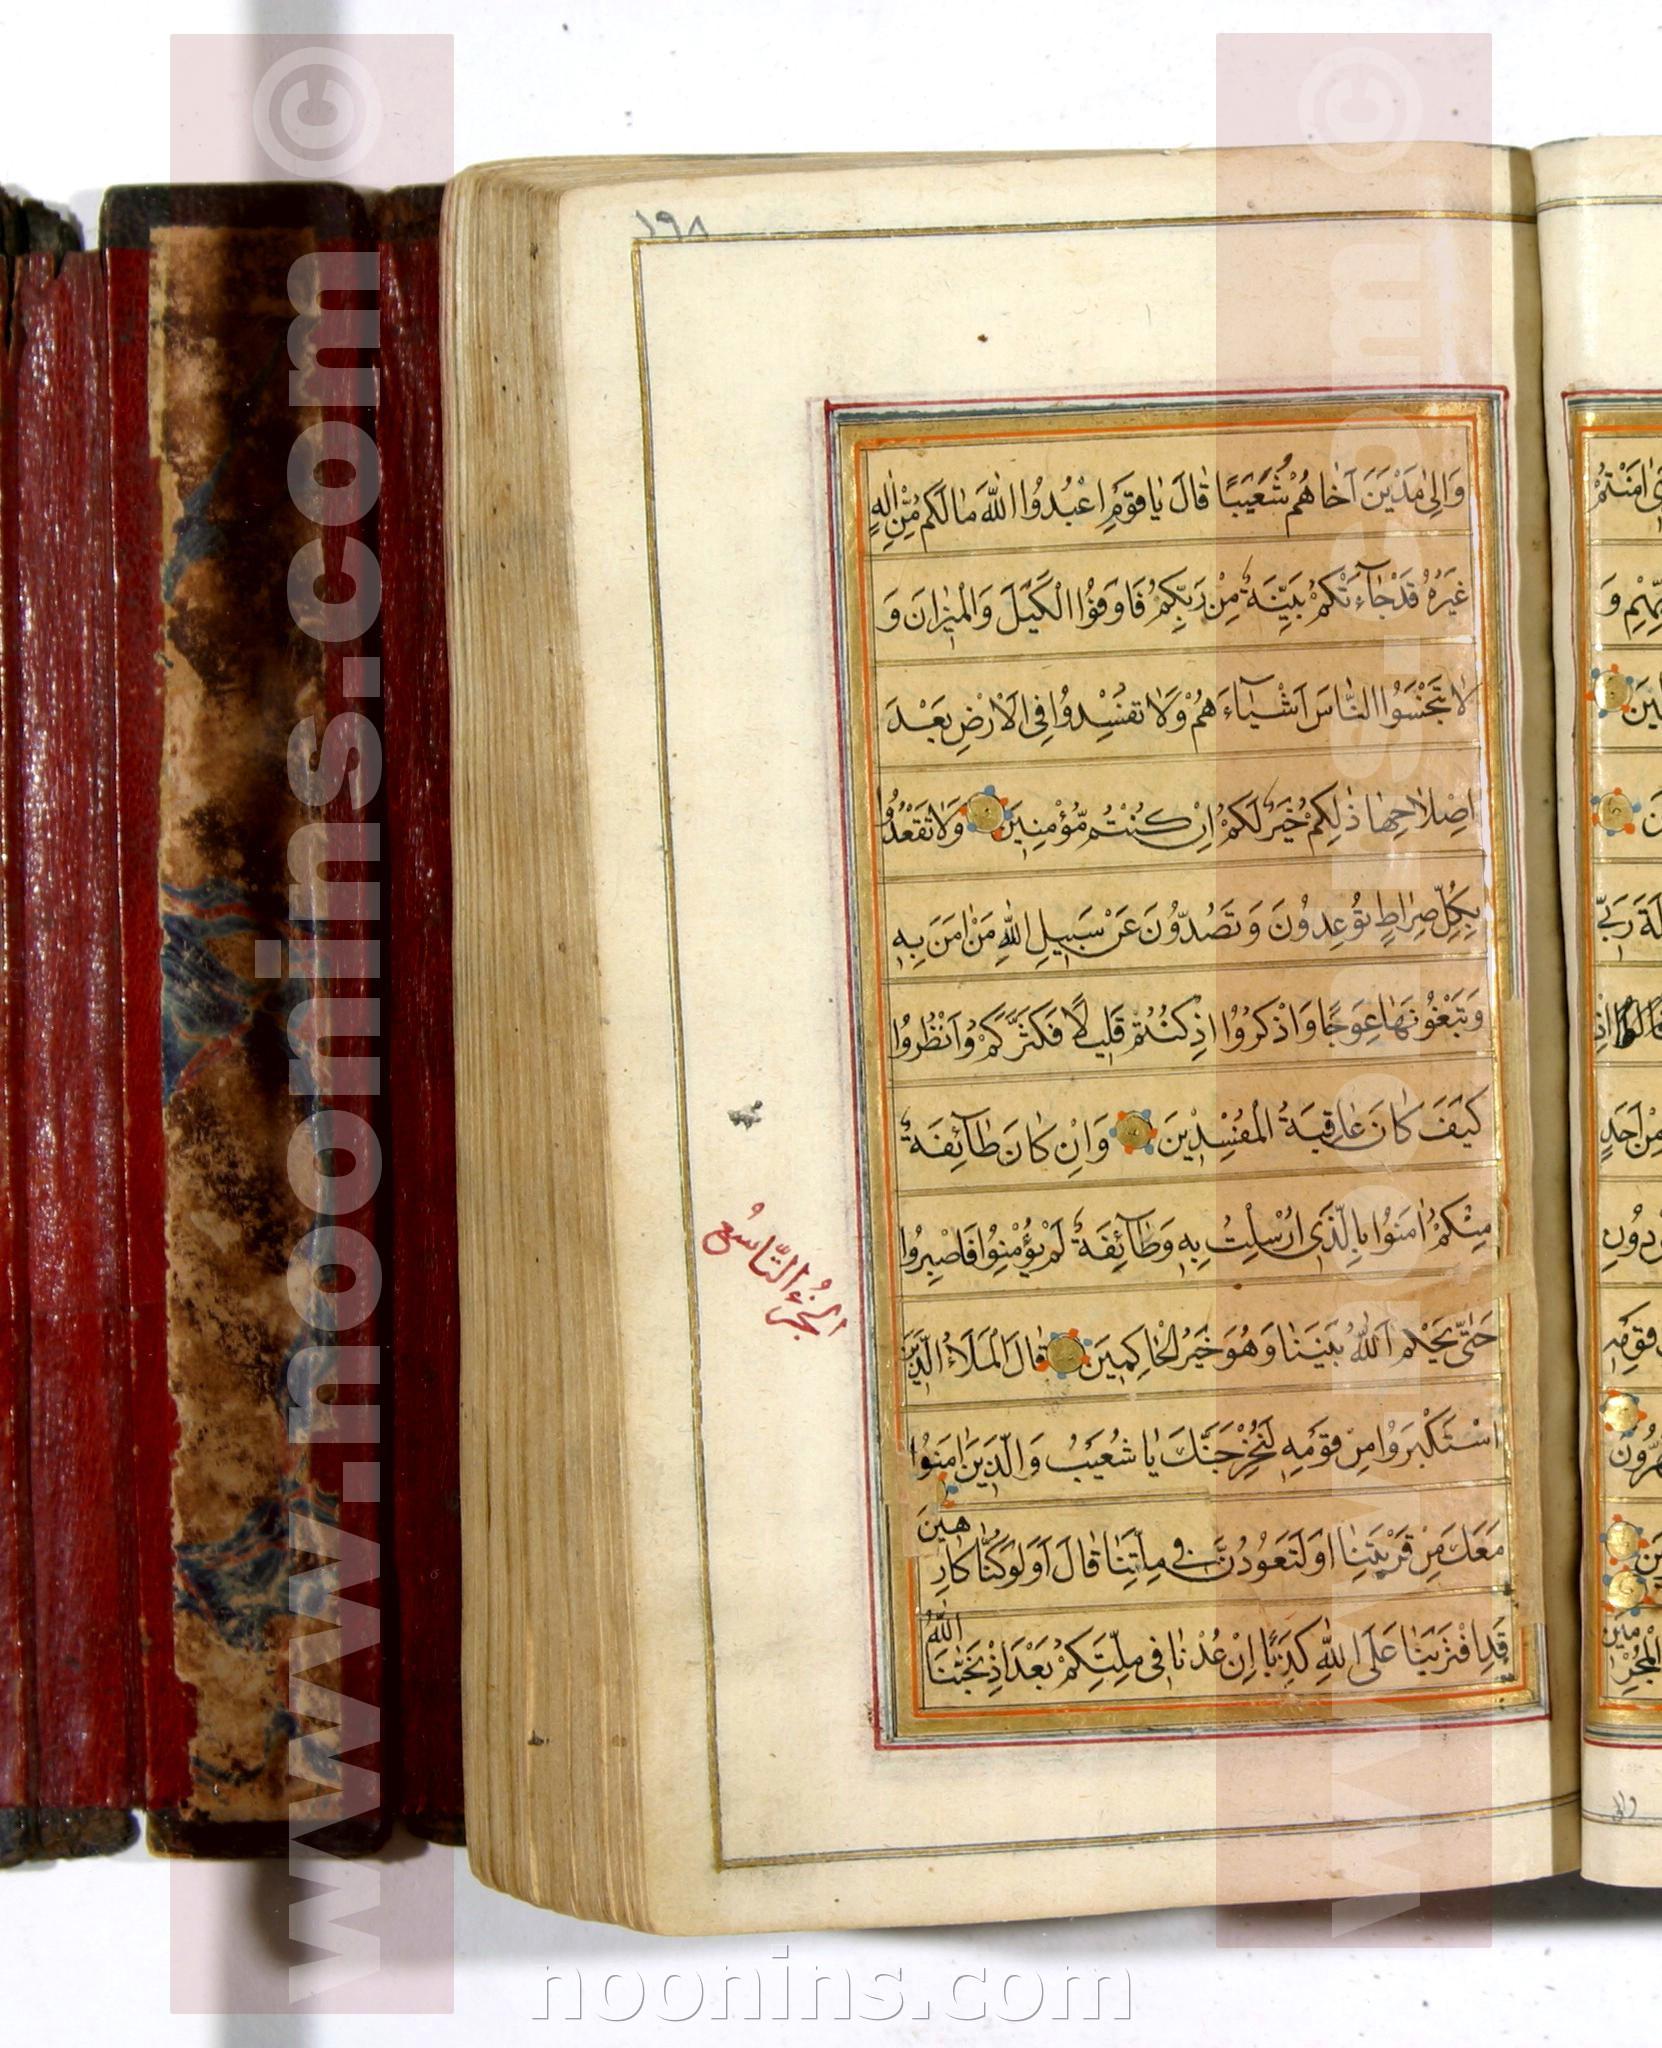 ١٩٨
وَاِلىٰ مَدْيَنَ اَخاهُمْ شُعَيْبًا قالَ يٰا قَوْمِ اعْبُدُوا اللّٰهَ مٰا لَكُمْ مِّنْ اِلٰهٍ
غَيْرُهُ قَدْ جٰآءَتْكُمْ بَيِّنَةٌ مِنْ رَبِّكُمْ فَاَوْفُوا الْكَيْلَ وَالْمِيْزانَ وَ
لٰا تَبْخَسُوا النّٰاسَ اَشْيٰآءَهُمْ وَلٰا تُفْسِدُوا فِى الْاَرْضِ بَعْدَ
اِصْلٰاحِهٰا ذٰلِكُمْ خَيْرٌ لَكُمْ اِنْ كُنْتُمْ مُّؤْمِنِينَ وَلٰا تَقْعُدُوا
بِكُلِّ صِرٰاطٍ تُوعِدُونَ وَتَصُدُّونَ عَنْ سَبِيلِ اللّٰهِ مَنْ اٰمَنَ بِهِ
وَتَبْغُونَهٰا عِوَجًا وَاذْكُرُوا اِذْ كُنْتُمْ قَلِيلًا فَكَثَّرَكُمْ وَانْظُرُوا
كَيْفَ كٰانَ عٰاقِبَةُ الْمُفْسِدِيْنَ وَاِنْ كٰانَ طٰآئِفَةٌ
مِنْكُمْ اٰمَنُوا بِالَّذِى اُرْسِلْتُ بِهِ وَطٰآئِفَةٌ لَمْ يُؤْمِنُوا فَاصْبِرُوا
حَتّٰى يَحْكُمَ اللّٰهُ بَيْنَنٰا وَهُوَ خَيْرُ الْحٰاكِمِينَ قٰالَ الْمَلَاُ الَّذِينَ
اسْتَكْبَرُوا مِنْ قَوْمِهِ لَنُخْرِجَنَّكَ يٰا شُعَيْبُ وَالَّذِينَ اٰمَنُوا
مَعَكَ مِنْ قَرْيَتِنٰا اَوْ لَتَعُودُنَّ فِى مِلَّتِنٰا قٰالَ اَوَلَوْ كُنّٰا كٰارِهِينَ
قَدِ افْتَرَيْنٰا عَلَى اللّٰهِ كَذِبًا اِنْ عُدْنٰا فِى مِلَّتِكُمْ بَعْدَ اِذْ نَجّٰينَا اللّٰهُ
الجُزْءُ التّاسعُ
www.noonins.com ©
www.noonins.com ©
noonins.com